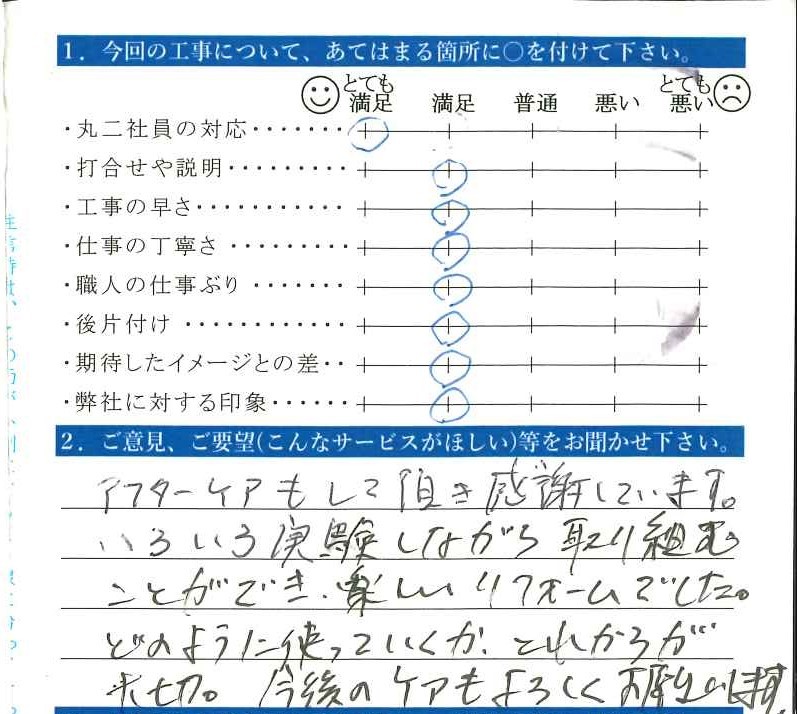 1. 今回の工事について、あてはまる箇所に○を付けて下さい。
とても満足 満足 普通 悪い とても悪い
・丸二社員の対応・・・・・・・
・打合せや説明・・・・・・・・
・工事の早さ・・・・・・・・・・
・仕事の丁寧さ・・・・・・・・・
・職人の仕事ぶり・・・・・・・
・後片付け・・・・・・・・・・・・
・期待したイメージとの差・・
・弊社に対する印象・・・・・・
2. ご意見、ご要望(こんなサービスがほしい)等をお聞かせ下さい。
アフターケアもして頂き感謝しています。
いろいろ実験しながら取り組む
ことができ、楽しいリフォームでした。
どのように使っていくか、これからが
大切。今後のケアもよろしくお願いします